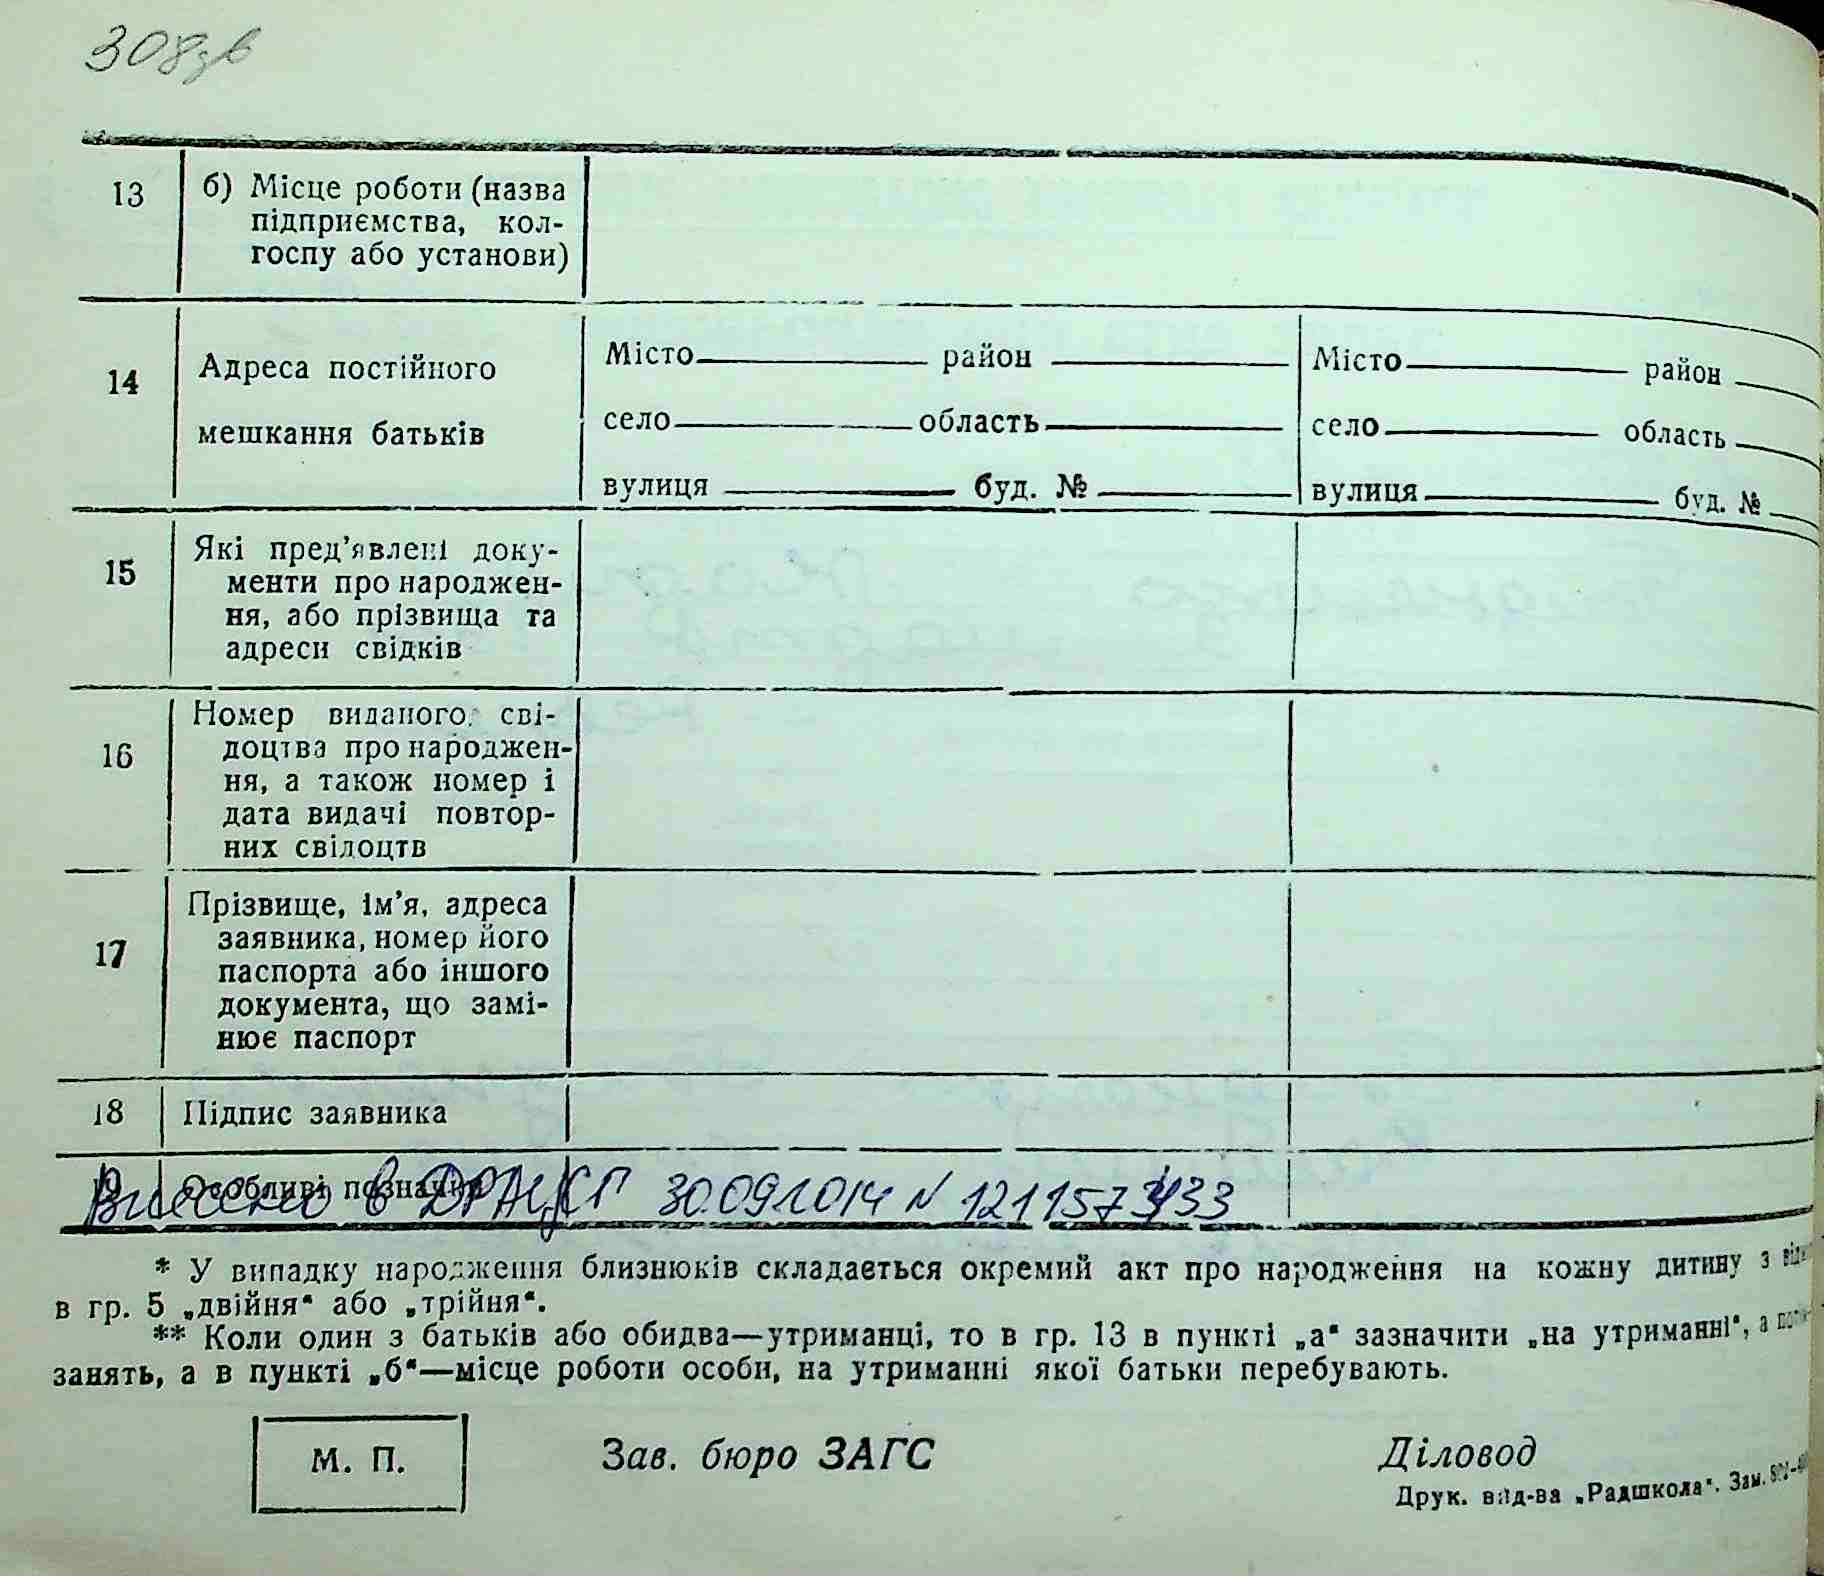 308зв
13 б) Місце роботи (назва
підприємства, кол-
госпу або установи)
14 Адреса постійного
мешкання батьків
Місто район
село область
вулиця буд. №
Місто район
село область
вулиця буд. №
15 Які пред’явлені доку-
менти про народжен-
ня, або прізвища та
адреси свідків
16 Номер виданого сві-
доцтва про народжен-
ня, а також номер і
дата видачі повтор-
них свідоцтв
17 Прізвище, ім’я, адреса
заявника, номер його
паспорта або іншого
документа, що замі-
нює паспорт
18 Підпис заявника
19 Особливі познач
Внесено в ДРАЦСГ 30.09.2014 N
* У випадку народження близнюків складається окремий акт про народження на кожну дитину з
в гр. 5 „двійня“ або „трійня“.
** Коли один з батьків або обидва—утриманці, то в гр. 13 в пункті „а“ зазначити „на утриманні“, а
занять, а в пункті „б“—місце роботи особи, на утриманні якої батьки перебувають.
М. П.
Зав. бюро ЗАГС
Діловод
Друк. вид-ва „Радшкола“. Зам.